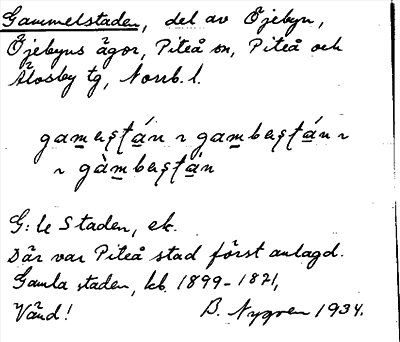 Gammelstaden, del av Öjebyn,
Öjebyns ägor, Piteå sn, Piteå och
Älvsby tg, Norrb. l.
gaməʂtán ~ gambəʂtán ~
~ gàmbəʂtán
G:le Staden, ek.
Där var Piteå stad först anlagd.
Gamla staden, kb. 1899-1871,
Vänd! B. Nygren 1934.